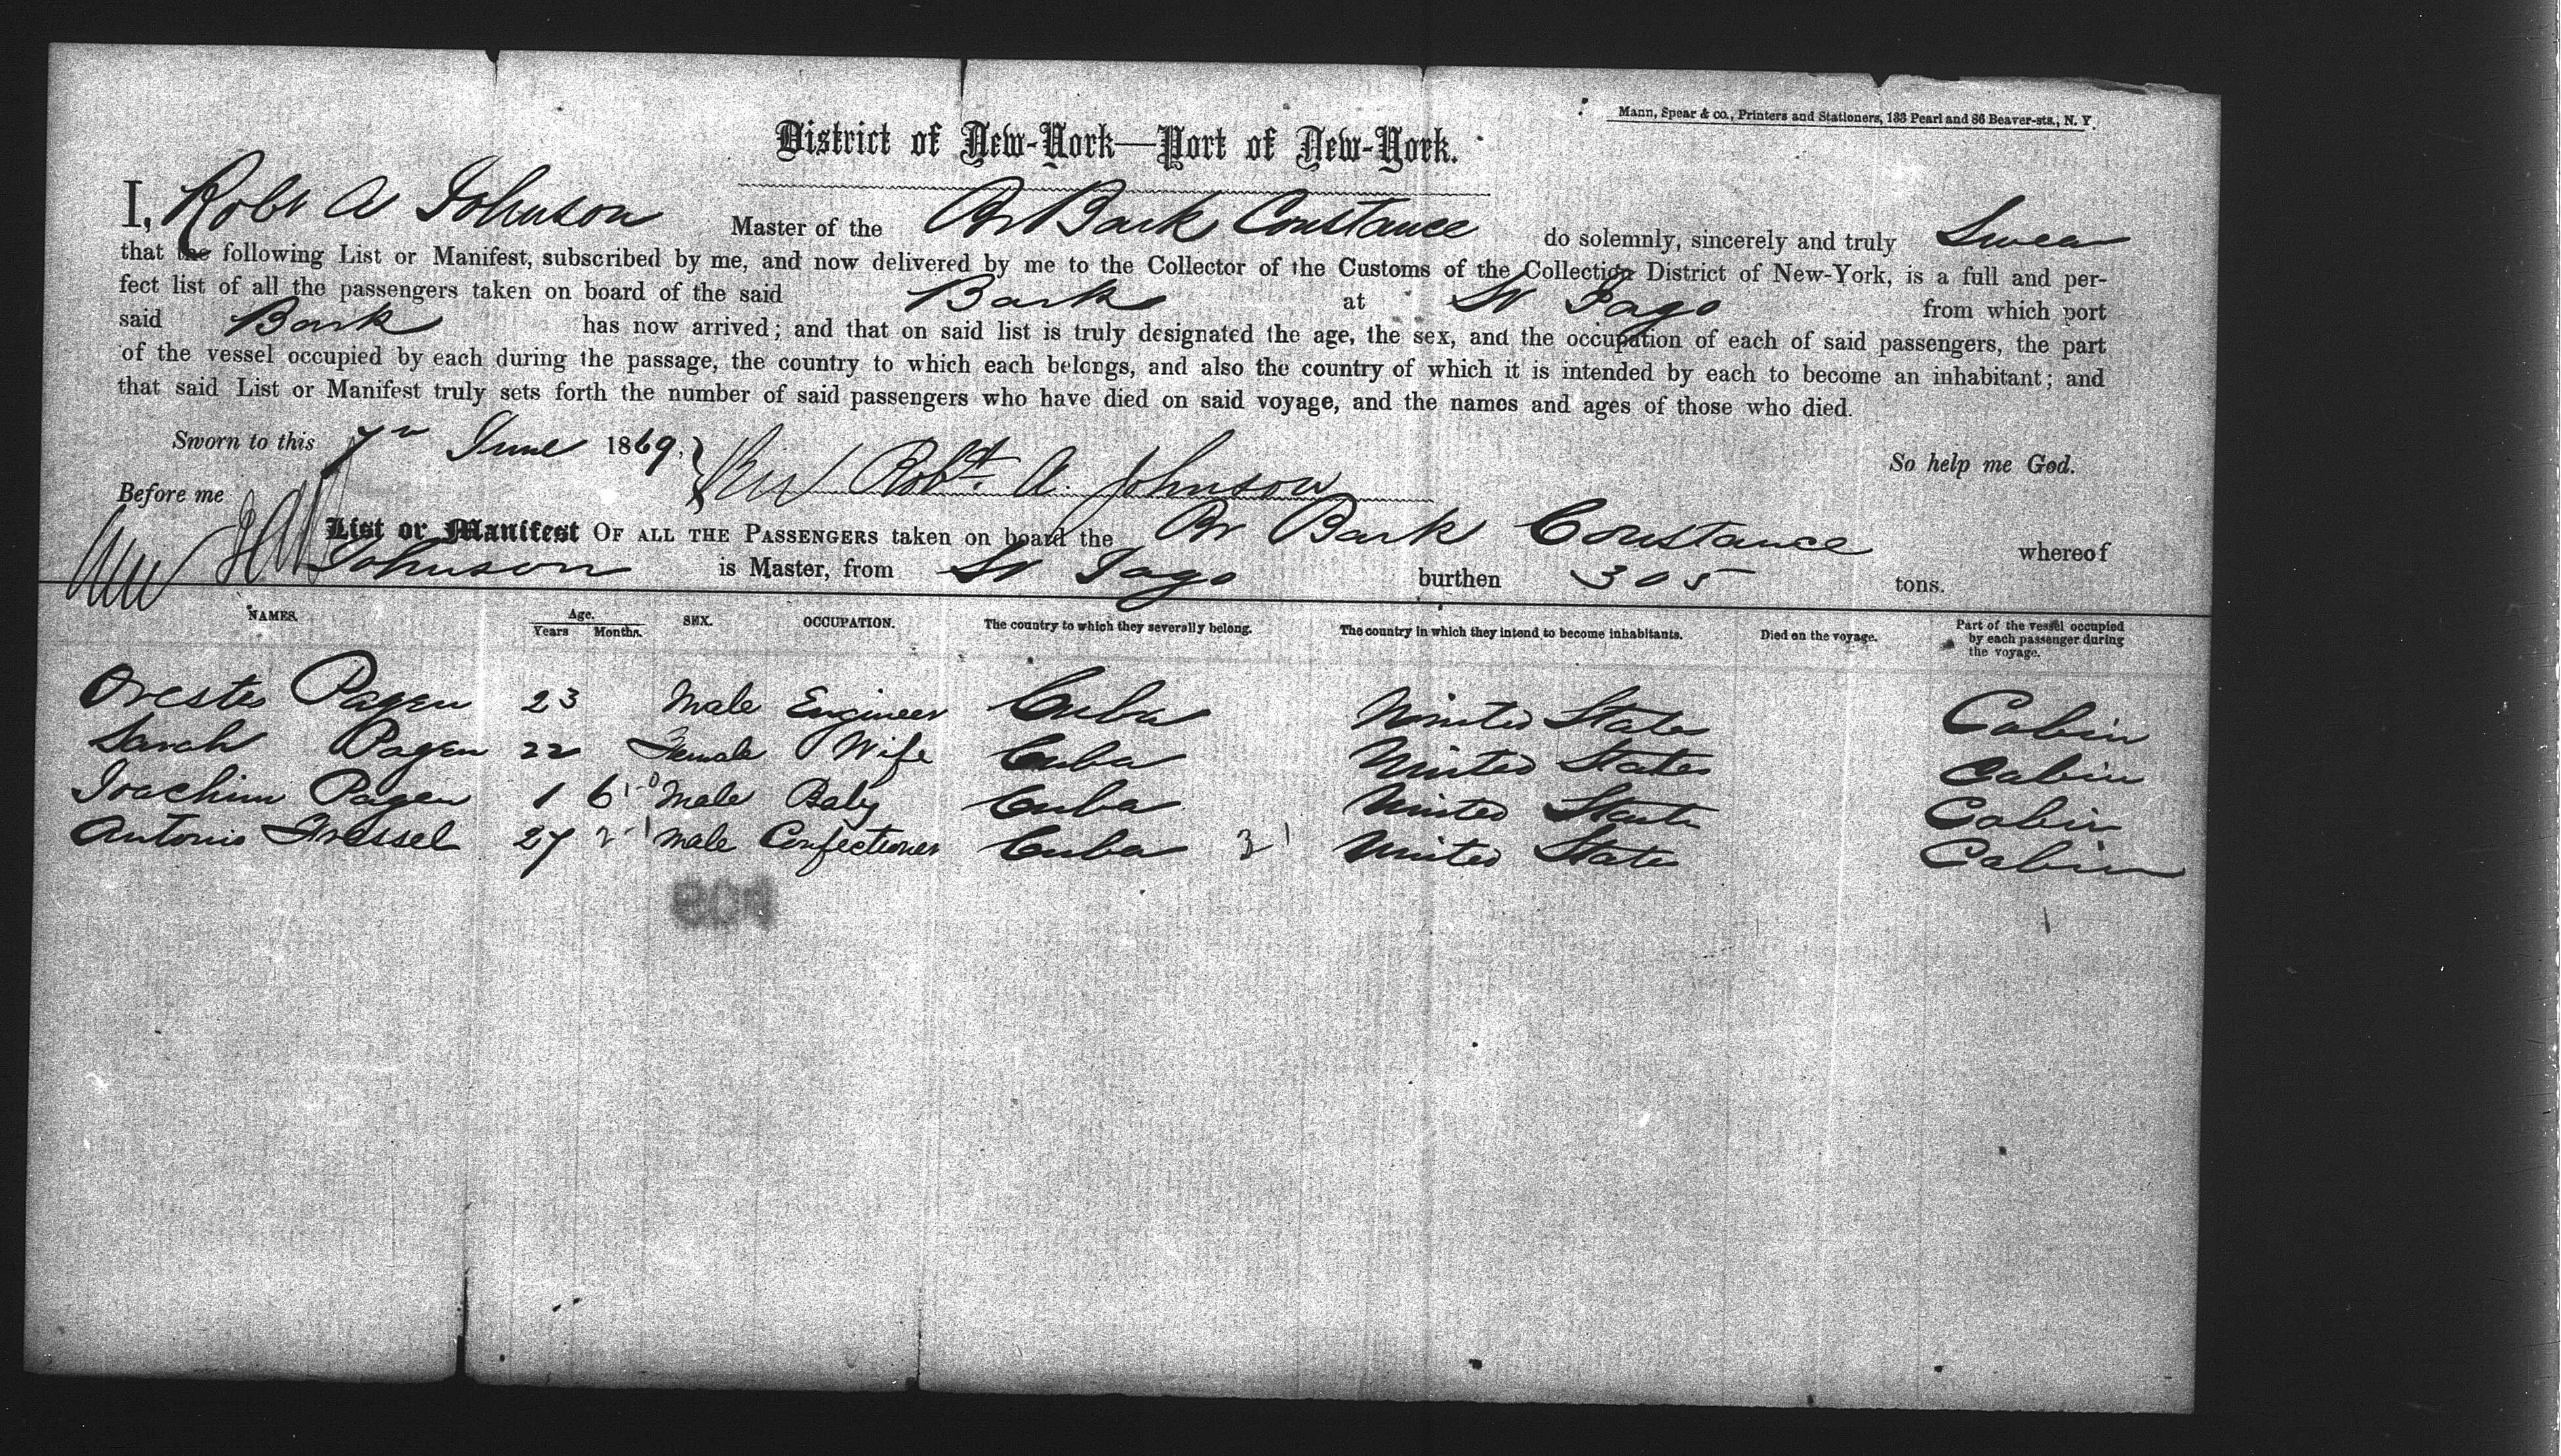 Mann, Spear & co., Printers and Stationers, 133 Pearl and 86 Beaver-sts., N. Y.
District of New-York—Port of New-York.
I, Robt A Johnson Master of the Br Bark Constance do solemnly, sincerely and truly Swear
that the following List or Manifest, subscribed by me, and now delivered by me to the Collector of the Customs of the Collection District of New-York, is a full and per-
fect list of all the passengers taken on board of the said Bark at St Jago from which port
said Bark has now arrived; and that on said list is truly designated the age, the sex, and the occupation of each of said passengers, the part
of the vessel occupied by each during the passage, the country to which each belongs, and also the country of which it is intended by each to become an inhabitant; and
that said List or Manifest truly sets forth the number of said passengers who have died on said voyage, and the names and ages of those who died.
Sworn to this 7th June 1869, Robt. A. Johnson So help me God.
Before me
List or Manifest OF ALL THE PASSENGERS taken on board the Br Bark Constance whereof
Johnson is Master, from St Jago burthen 305 tons.
NAMES. Age. Years Months. SEX. OCCUPATION. The country to which they severally belong. The country in which they intend to become inhabitants. Died on the voyage. Part of the vessel occupied by each passenger during the voyage.
Orestes Pagen 23 Male Engineer Cuba United States Cabin
Sarah Pagen 22 Female Wife Cuba United States Cabin
Joachim Pagen 1 6 Male Baby Cuba United States Cabin
Antonio 27 Male Confectioner Cuba United States Cabin